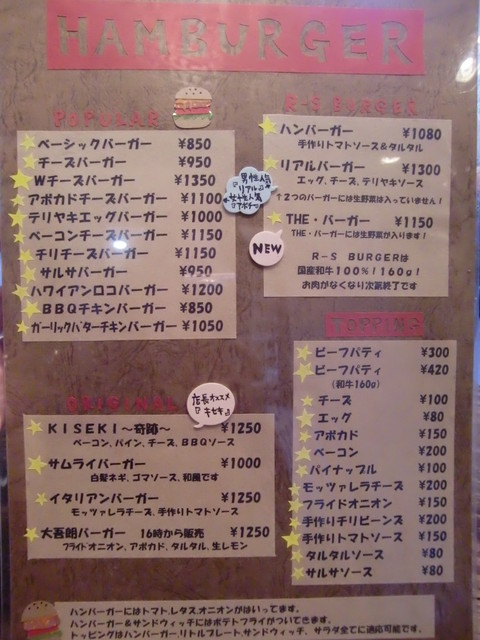 HAMBURGER
POPULAR
ベーシックバーガー ¥850
チーズバーガー ¥950
Wチーズバーガー ¥1350
アボカドチーズバーガー ¥1100
テリヤキエッグバーガー ¥1000
ベーコンチーズバーガー ¥1150
チリチーズバーガー ¥1150
サルサバーガー ¥950
ハワイアンロコバーガー ¥1200
BBQチキンバーガー ¥850
ガーリックバターチキンバーガー ¥1050
男性人気
リアル
女性人気
アボチー
ORIGINAL
店長オススメ
『キセキ』
KISEKI～奇跡～ ¥1250
ベーコン、パイン、チーズ、BBQソース
サムライバーガー ¥1000
白髪ネギ、ゴマソース、和風です
イタリアンバーガー ¥1250
モッツァレラチーズ、手作りトマトソース
大吾朗バーガー 16時から販売 ¥1250
フライドオニオン、アボカド、タルタル、生レモン
R-S BURGER
ハンバーガー ¥1080
手作りトマトソース&タルタル
リアルバーガー ¥1300
エッグ、チーズ、テリヤキソース
↑2つのバーガーには生野菜は入っていません!
THE・バーガー ¥1150
THE・バーガーには生野菜が入ります!
NEW
R-S BURGERは
国産和牛100%!160g!
お肉がなくなり次第終了です
TOPPING
ビーフパティ ¥300
ビーフパティ ¥420
(和牛160g)
チーズ ¥100
エッグ ¥80
アボカド ¥150
ベーコン ¥200
パイナップル ¥100
モッツァレラチーズ ¥200
フライドオニオン ¥150
手作りチリビーンズ ¥200
手作りトマトソース ¥150
タルタルソース ¥80
サルサソース ¥80
ハンバーガーにはトマト、レタス、オニオンがはいってます。
ハンバーガー&サンドウィッチにはポテトフライがついてきます。
トッピングはハンバーガー、リトルプレート、サンドウィッチ、サラダ全てに適応可能です。